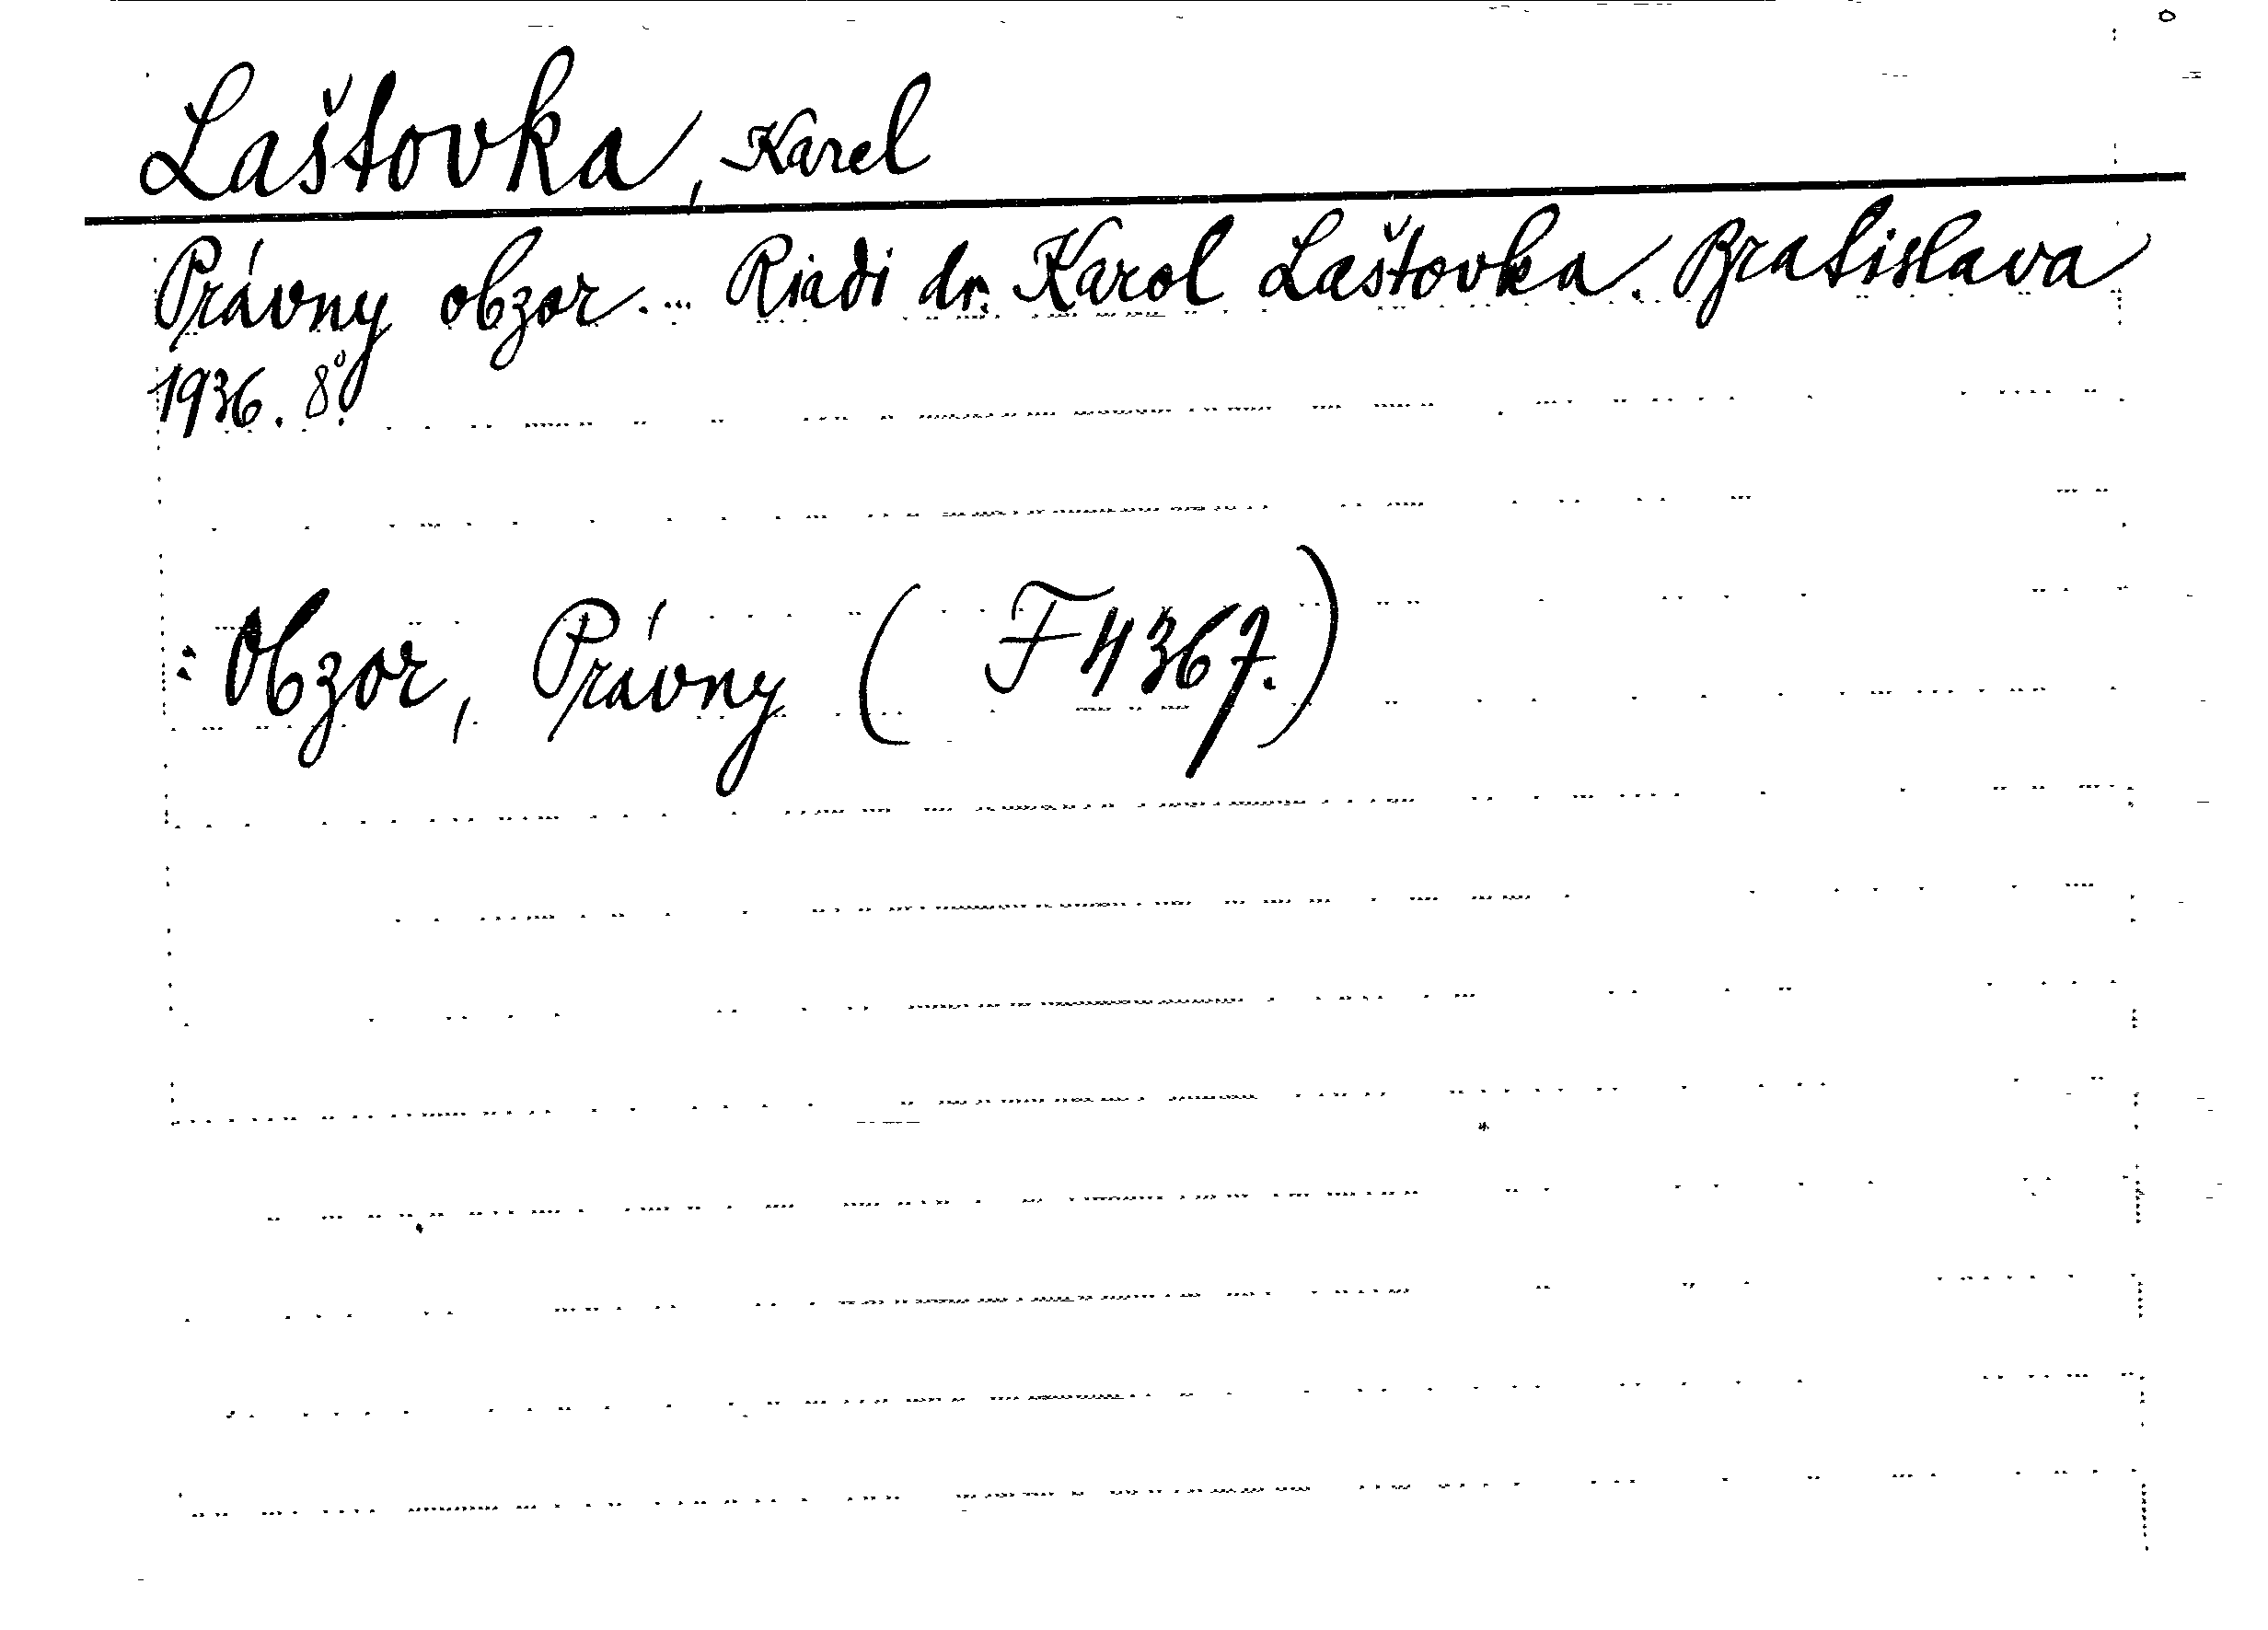 Laštovka, Karel
Právny obzor... Riadi dr. Karol Laštovka. Bratislava
1936. 8°.
: Obzor, Právny ( F 4367.)